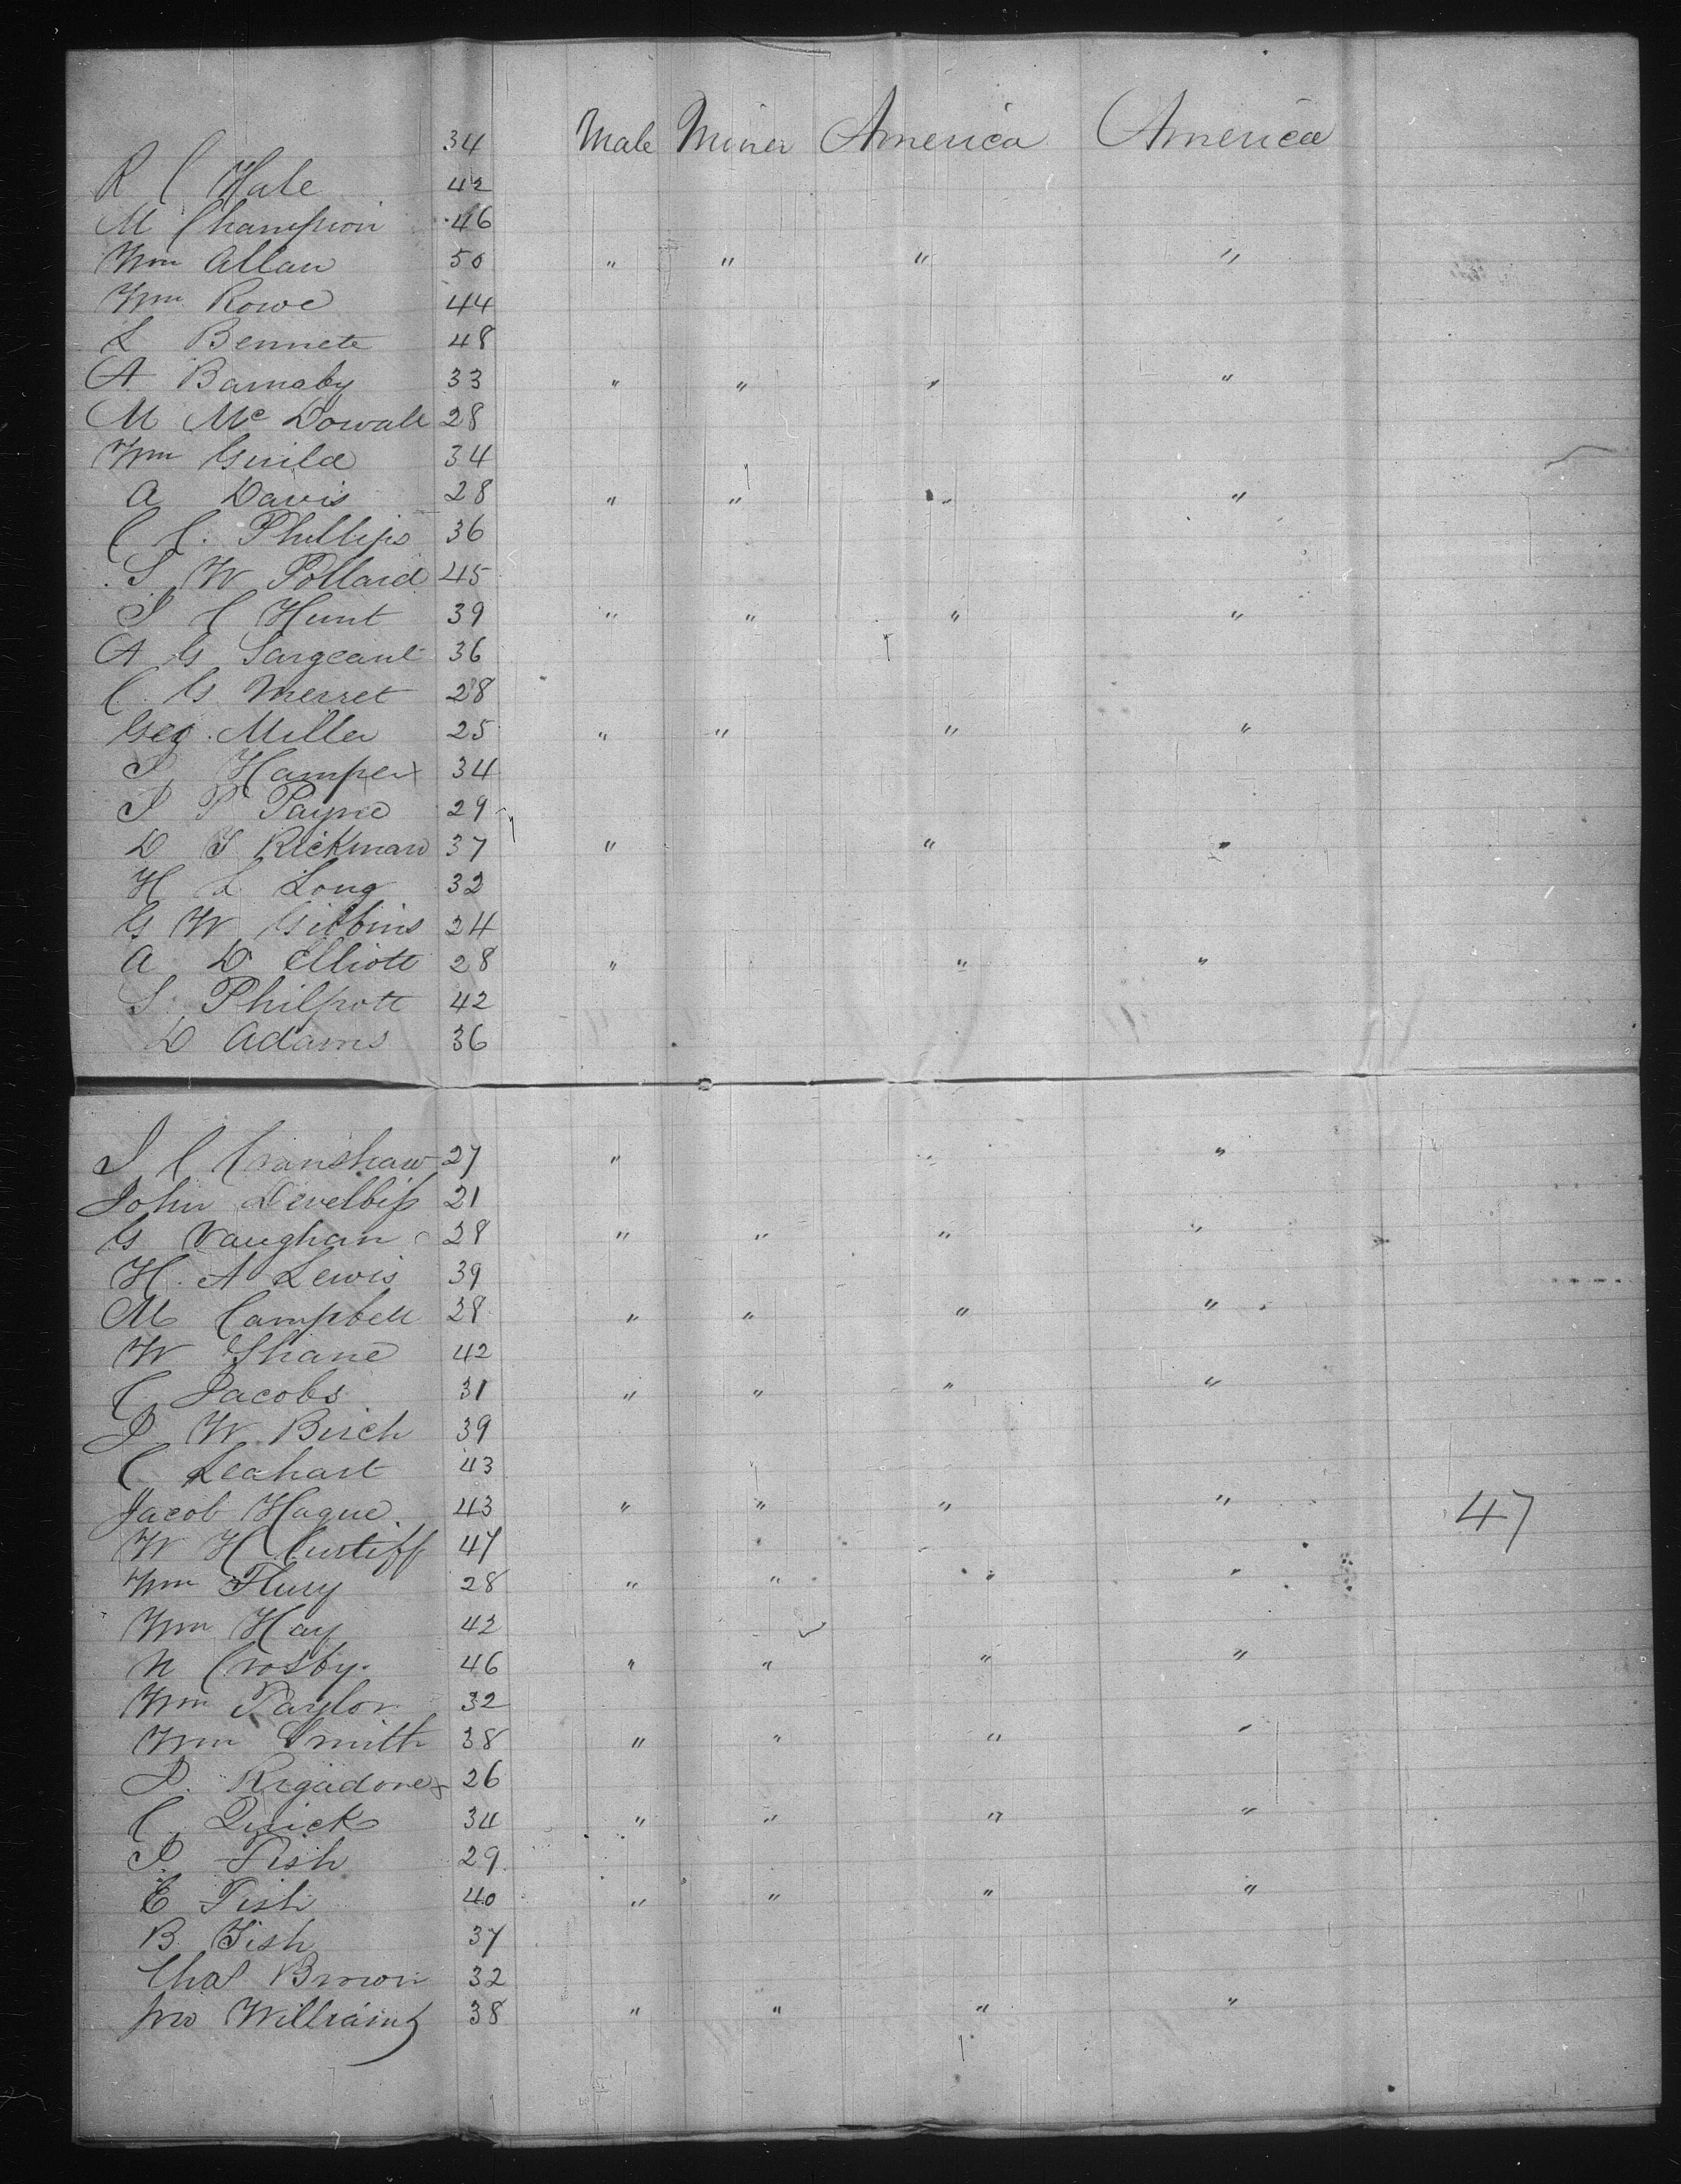 34 Male Miner America America
R C Hale 42
M Champion 46
Wm Allan 50 " " " "
Wm Rowe 44
L Bennete 48
A Barnaby 33 " " " "
M Mc Dowall 28
Wm Guild 34
A Davis 28 " " " "
C C. Phillips 36
S W Pollard 45
J C Hunt 39 " " " "
A G Sargeant 36
C. G Merret 28
Geo. Miller 25 " " " "
J Hamper 34
J P Payne 29
D J Rickman 37 " " "
H L Long 32
G W Gibbins 24
A D Elliott 28 " " "
S. Philpott 42
D Adams 36
J C Cranshaw 27 " " "
John Develbiss 21
G Vaughan 28 " " " "
H. A Lewis 39
M Campbell 28 " " " "
W Shane 42
C. Jacobs 31 " " " "
J W. Birch 39
C Leahart 43
Jacob Hague. 43 " " " " 47
W H Curtiss 47
Wm Flury 28 " " " "
Wm Hay 42
N Crosby. 46 " " " "
Wm Taylor 32
Wm Smith 38 " " " "
J. 26
C Quick 34 " " " "
J. Fish 29
E Fish 40 " " " "
B. Fish 37
Chas Brown 32
Jno Williams 38 " " " "